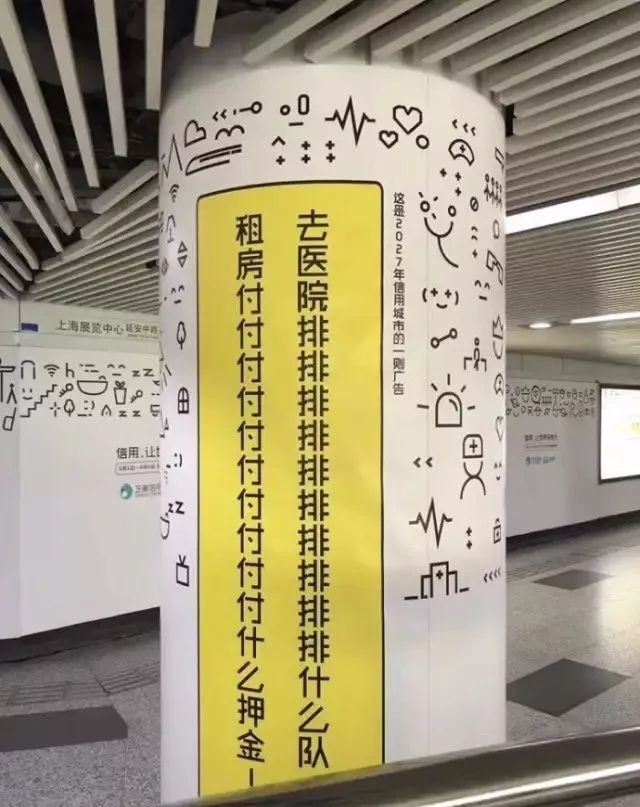 这是2027年信用城市的一则广告
去医院排排排排排排排排排排什么队
租房付付付付付付付付付付什么押金!
上海展览中心 延安中路
信用,让
芝麻信用
zzz
zzz
zz